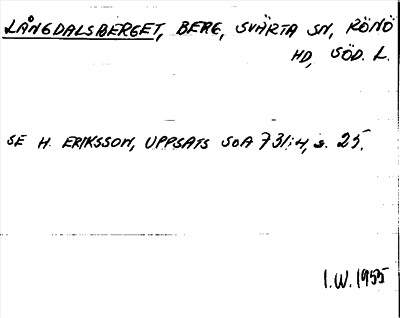 LÅNGDALSBERGET, BERG, SVÄRTA SN, RÖNÖ
HD, SÖD. L.
SE H. ERIKSSON, UPPSATS SOA 731:4, s. 25.
I.W. 1955